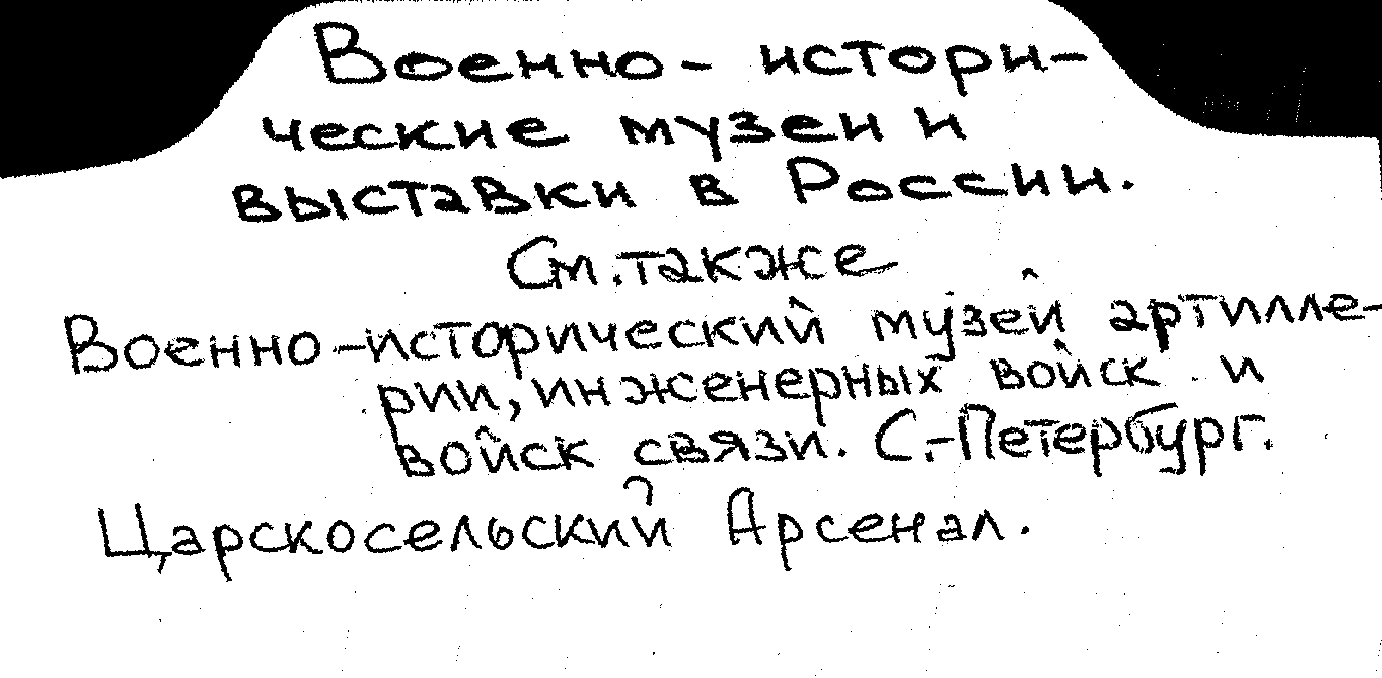 Военно- истори-
ческие музеи и
выставки в России.
См. также
Военно-исторический музей артилле-
рии, инженерных войск и
войск связи. С.-Петербург.
Царскосельский Арсенал.